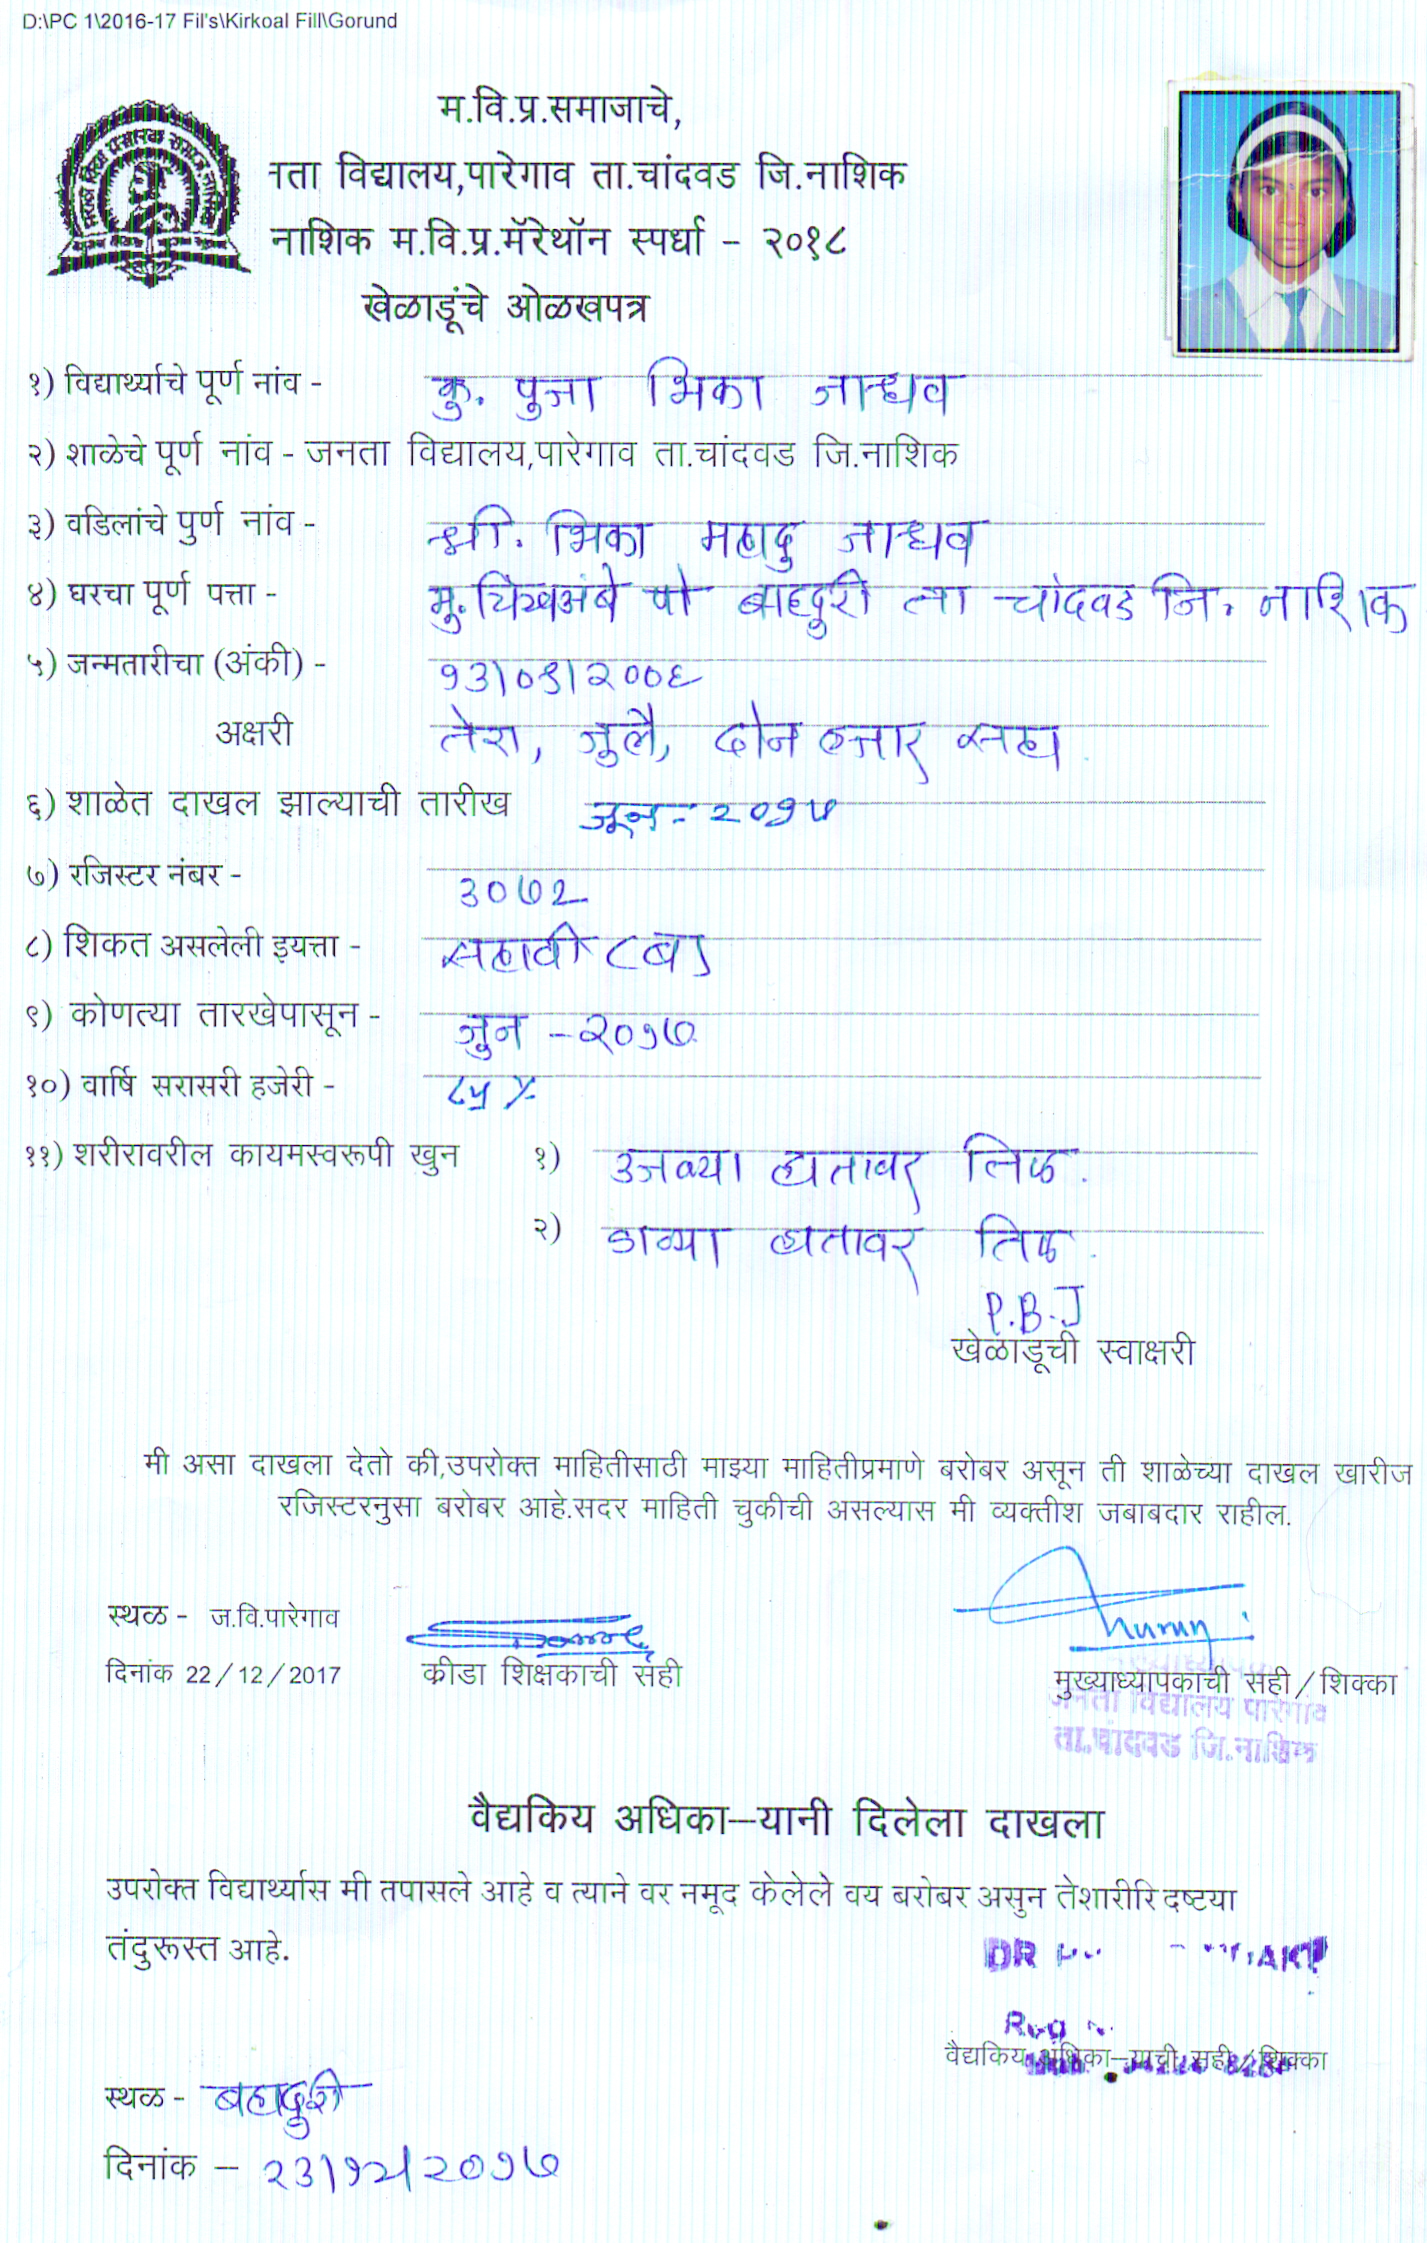 D:\PC 1\2016-17 Fil's\Kirkoal Fill\Gorund
म.वि.प्र.समाजाचे,
नता विद्यालय,पारेगाव ता.चांदवड जि.नाशिक
नाशिक म.वि.प्र.मॅरेथॉन स्पर्धा – २०१८
खेळाडूंचे ओळखपत्र
१) विद्यार्थ्याचे पूर्ण नांव - कु. पुजा भिका जाधव
२) शाळेचे पूर्ण नांव - जनता विद्यालय,पारेगाव ता.चांदवड जि.नाशिक
३) वडिलांचे पुर्ण नांव - श्री. भिका महादु जाधव
४) घरचा पूर्ण पत्ता - मु. चिखअंबे पो बाहदुरी ता चांदवड जि. नाशिक
५) जन्मतारीचा (अंकी) - १३/०७/२००६
अक्षरी तेरा, जुलै, दोन हजार सहा.
६) शाळेत दाखल झाल्याची तारीख जून - २०१७
७) रजिस्टर नंबर - ३०७२
८) शिकत असलेली इयत्ता - सहावी (ब)
९) कोणत्या तारखेपासून - जुन - २०१७
१०) वार्षि सरासरी हजेरी - ८५ %
११) शरीरावरील कायमस्वरूपी खुन १) उजव्या हातावर तिळ.
२) डाव्या हातावर तिळ.
P.B.J
खेळाडूची स्वाक्षरी
मी असा दाखला देतो की,उपरोक्त माहितीसाठी माझ्या माहितीप्रमाणे बरोबर असून ती शाळेच्या दाखल खारीज
रजिस्टरनुसा बरोबर आहे.सदर माहिती चुकीची असल्यास मी व्यक्तीश जबाबदार राहील.
स्थळ - ज.वि.पारेगाव
दिनांक 22/12/2017 क्रीडा शिक्षकाची सही मुख्याध्यापकाची सही/शिक्का
जनता विद्यालय पारेगांव
ता.चांदवड जि.नाशिक
वैद्यकिय अधिका–यानी दिलेला दाखला
उपरोक्त विद्यार्थ्यास मी तपासले आहे व त्याने वर नमूद केलेले वय बरोबर असुन तेशारीरि दष्टया
तंदुरूस्त आहे.
DR
वैद्यकिय अधिका–याची सही/शिक्का
स्थळ - बहादुरी
दिनांक – २३/१२/२०१७